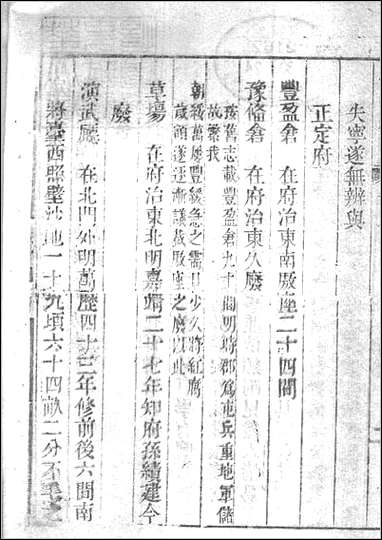 失寧遂無辨與
正定府
豐盈倉　在府治東南廒座二十四間
豫備倉　在府治東久廢
按舊志載豐盈倉九十間明時郡爲屯兵重地軍儲
故繁我
朝綏萬屢豐緩急之需日少久將紅腐
歲頒遂逐漸議裁廒座之廢以此
草場　在府治東北明嘉靖二十七年知府孫續建今
廢
演武廳　在北門外明萬歷四十三年修前後六間南
將臺西照壁沙地一十九頃六十四畝二分不